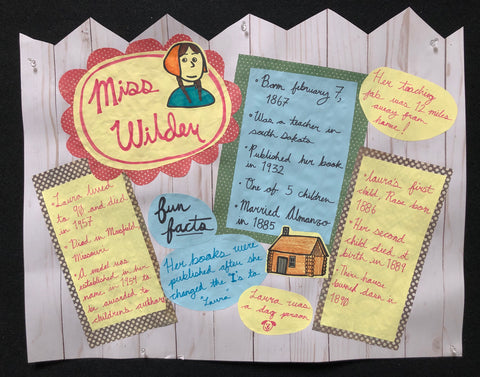 Miss
Wilder
• Born february 7,
1867
• Was a teacher in
south Dakota
• Published her book
in 1932
• One of 5 children
• Married Almanzo
in 1885
Her teaching
job was 12 miles
away from
home!
Laura lived
to 90 and died
in 1957
• Died in Mansfield
Missouri
• A medal was
established in her
name in 1954 to
be awarded to
childrens authors
fun
facts
Her books were
published after she
changed the "I"s to
"Laura"
Laura was
a dog person
• Laura's first
child, Rose born
1886
• Her second
child died at
birth in 1889
• Their house
burned down in
1890